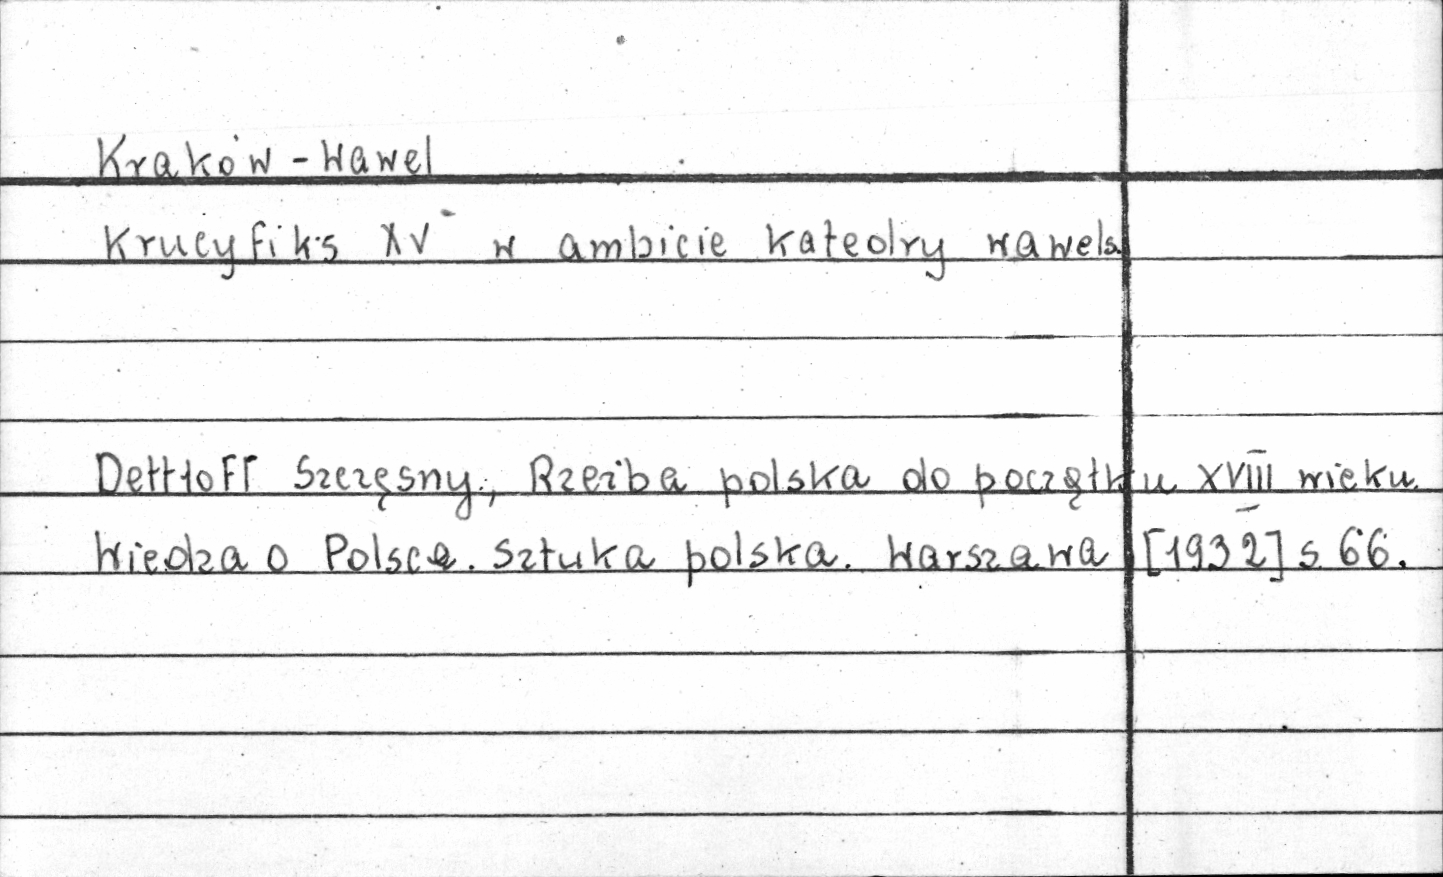 Kraków - Wawel
Krucyfiks XV w ambicie katedry wawels.
Dettloff Szczęsny, Rzeźba polska do początku XVIII wieku.
Wiedza o Polsce. Sztuka polska. Warszawa [1932] s. 66.